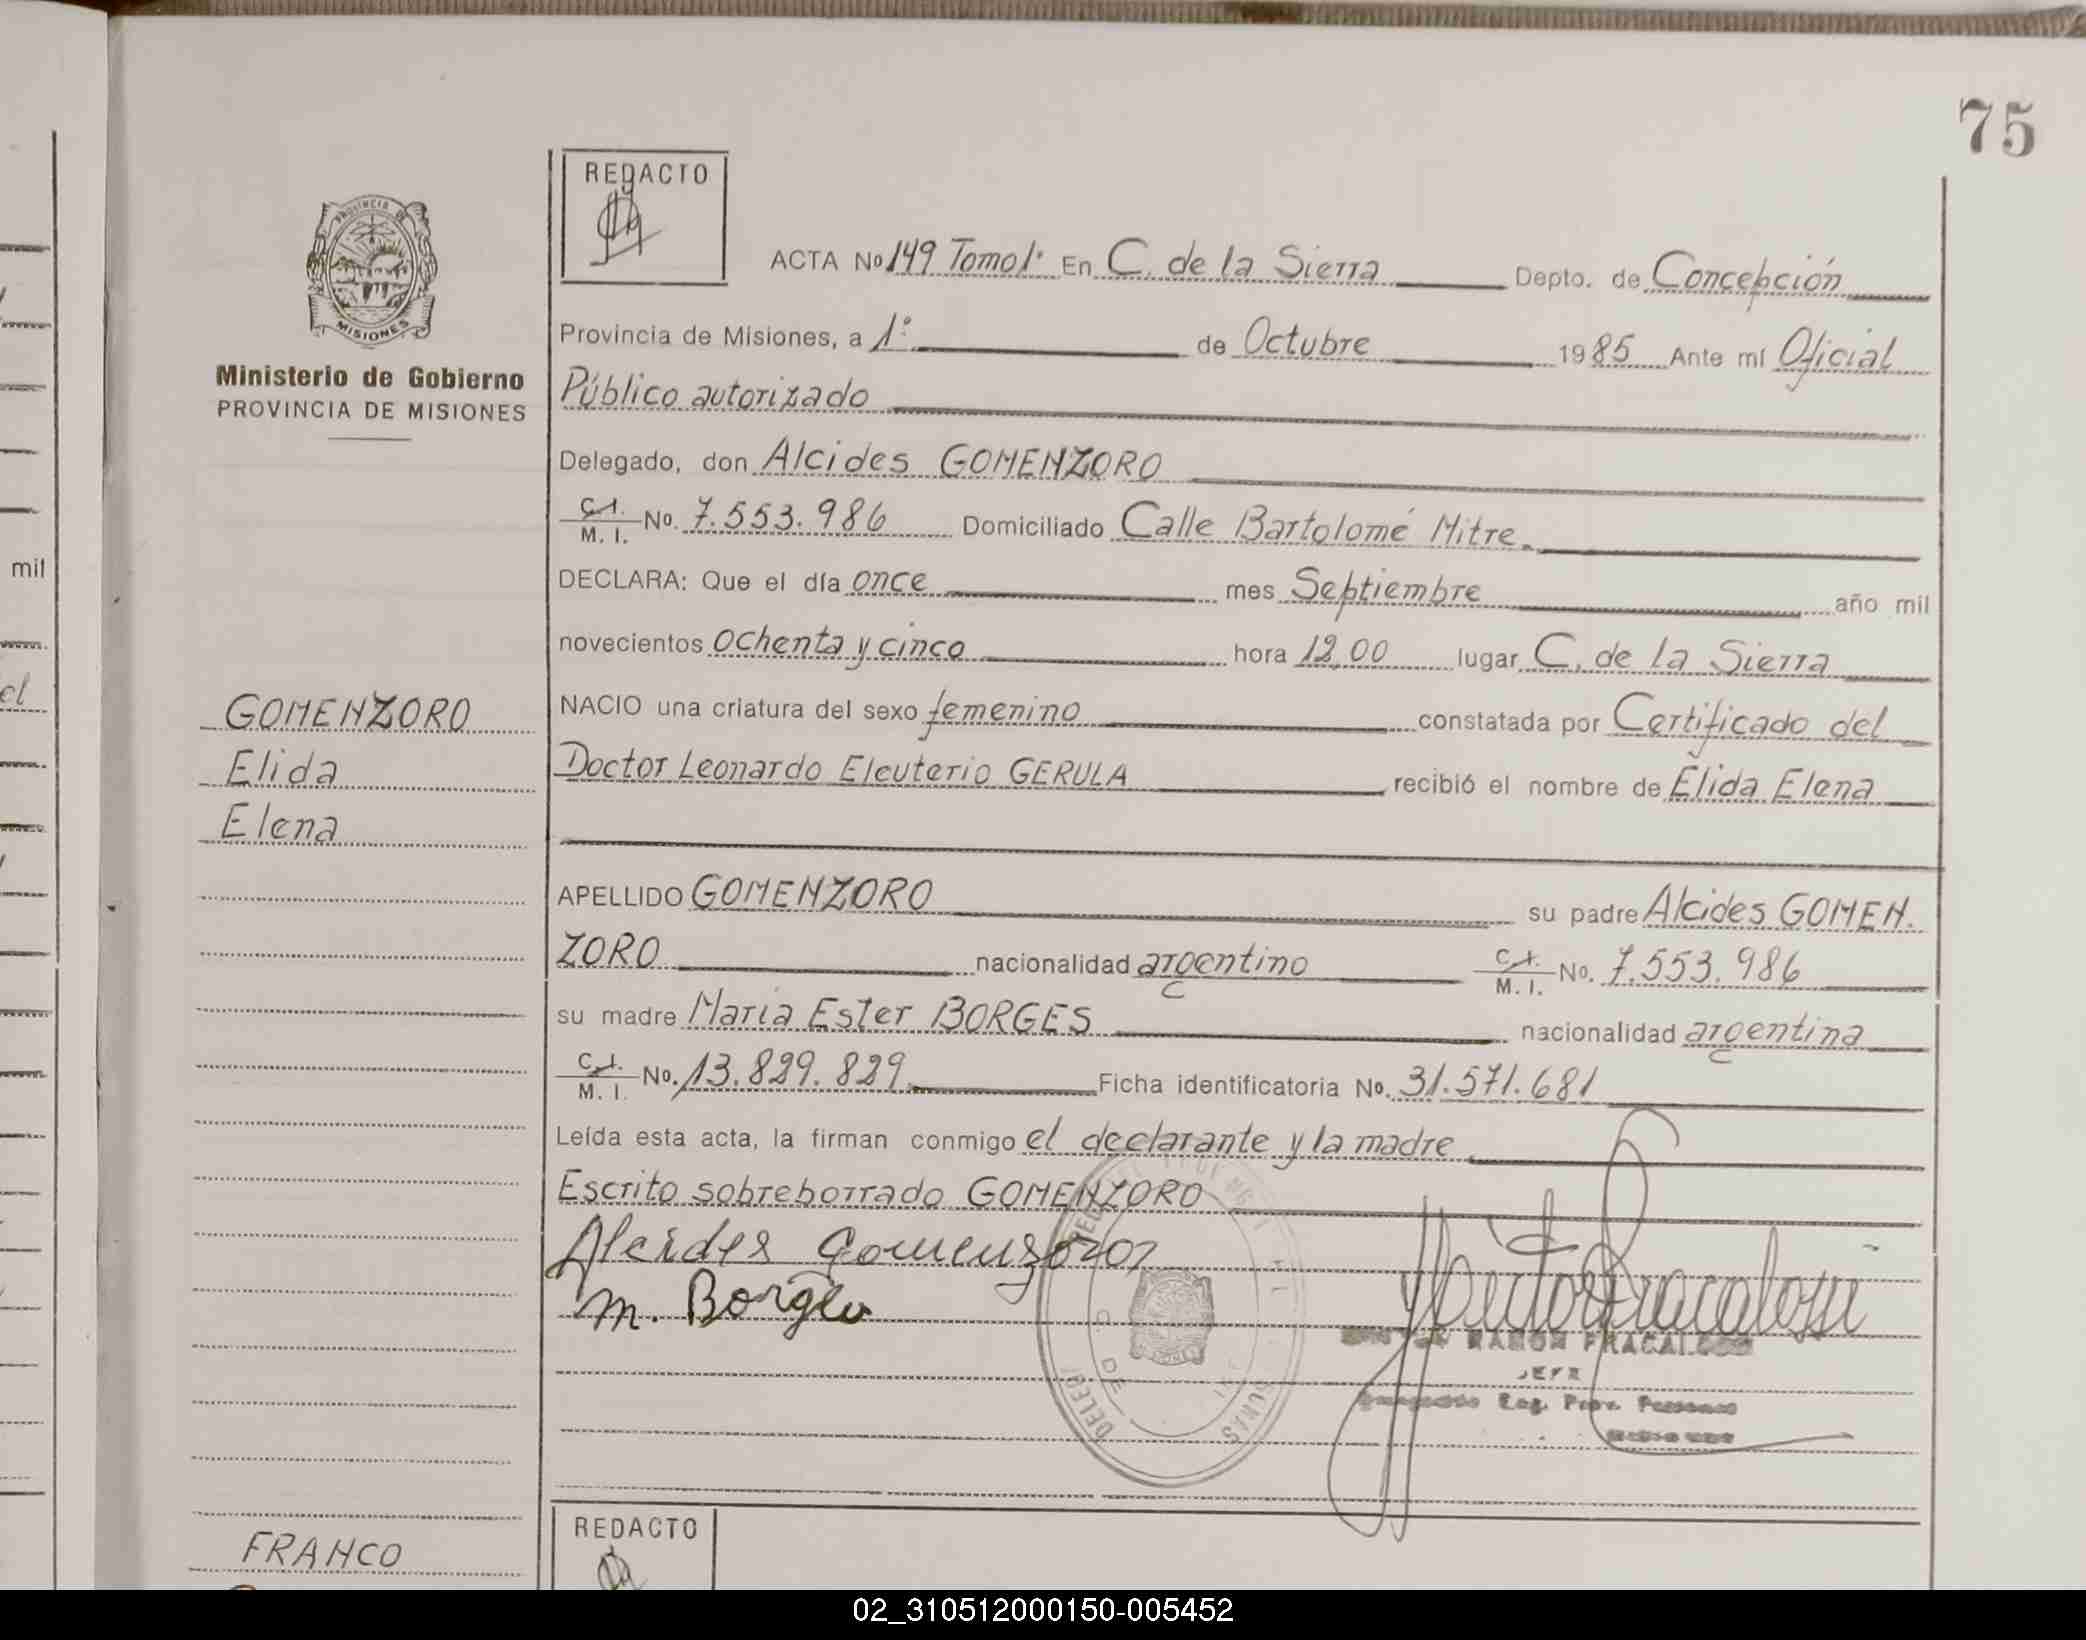 75
REDACTO
ACTA Nº 149 Tomo 1º En C. de la Sierra Depto. de Concepción
PROVINCIA DE
MISIONES
Provincia de Misiones, a 1º de Octubre 1985 Ante mí Oficial
Ministerio de Gobierno
PROVINCIA DE MISIONES
Público autorizado
Delegado, don Alcides GOMENZORO
C.I. M. I. No. 7.553.986 Domiciliado Calle Bartolomé Mitre
mil
DECLARA: Que el día once mes Septiembre año mil
novecientos ochenta y cinco hora 12,00 lugar C. de la Sierra
el
GOMENZORO
NACIO una criatura del sexo femenino constatada por Certificado del
Elida
Doctor Leonardo Eleuterio GERULA recibió el nombre de Elida Elena
Elena
APELLIDO GOMENZORO su padre Alcides GOMEN.
ZORO nacionalidad argentino C.I. M. I. No. 7.553.986
su madre María Ester BORGES nacionalidad argentina
C.I. M. I. No. 13.829.829 Ficha identificatoria No. 31.571.681
Leída esta acta, la firman conmigo el declarante y la madre
Escrito sobreborrado GOMENZORO
Alcides Gomenzoro
M. Borges
Hector Fracalossi
RAMON FRACALOSSI
JEFE
Delegación Reg. Prov. Personas
REDACTO
FRANCO
02_310512000150-005452